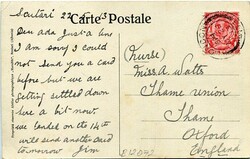 Carte Postale
Scutari 22
Dear Ada Just a line
I am sorry I could
not send you a card
before but we are
getting settled down
here a bit now.
we landed on the 14th
will send another card
tomorrow Jim
(Nurse)
Miss A Watts
Thame Union
Thame
Oxford
England